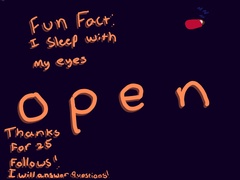 Fun Fact:
I Sleep with
My eyes
open
Thanks
For 25
Follows!
I will answer Questions!